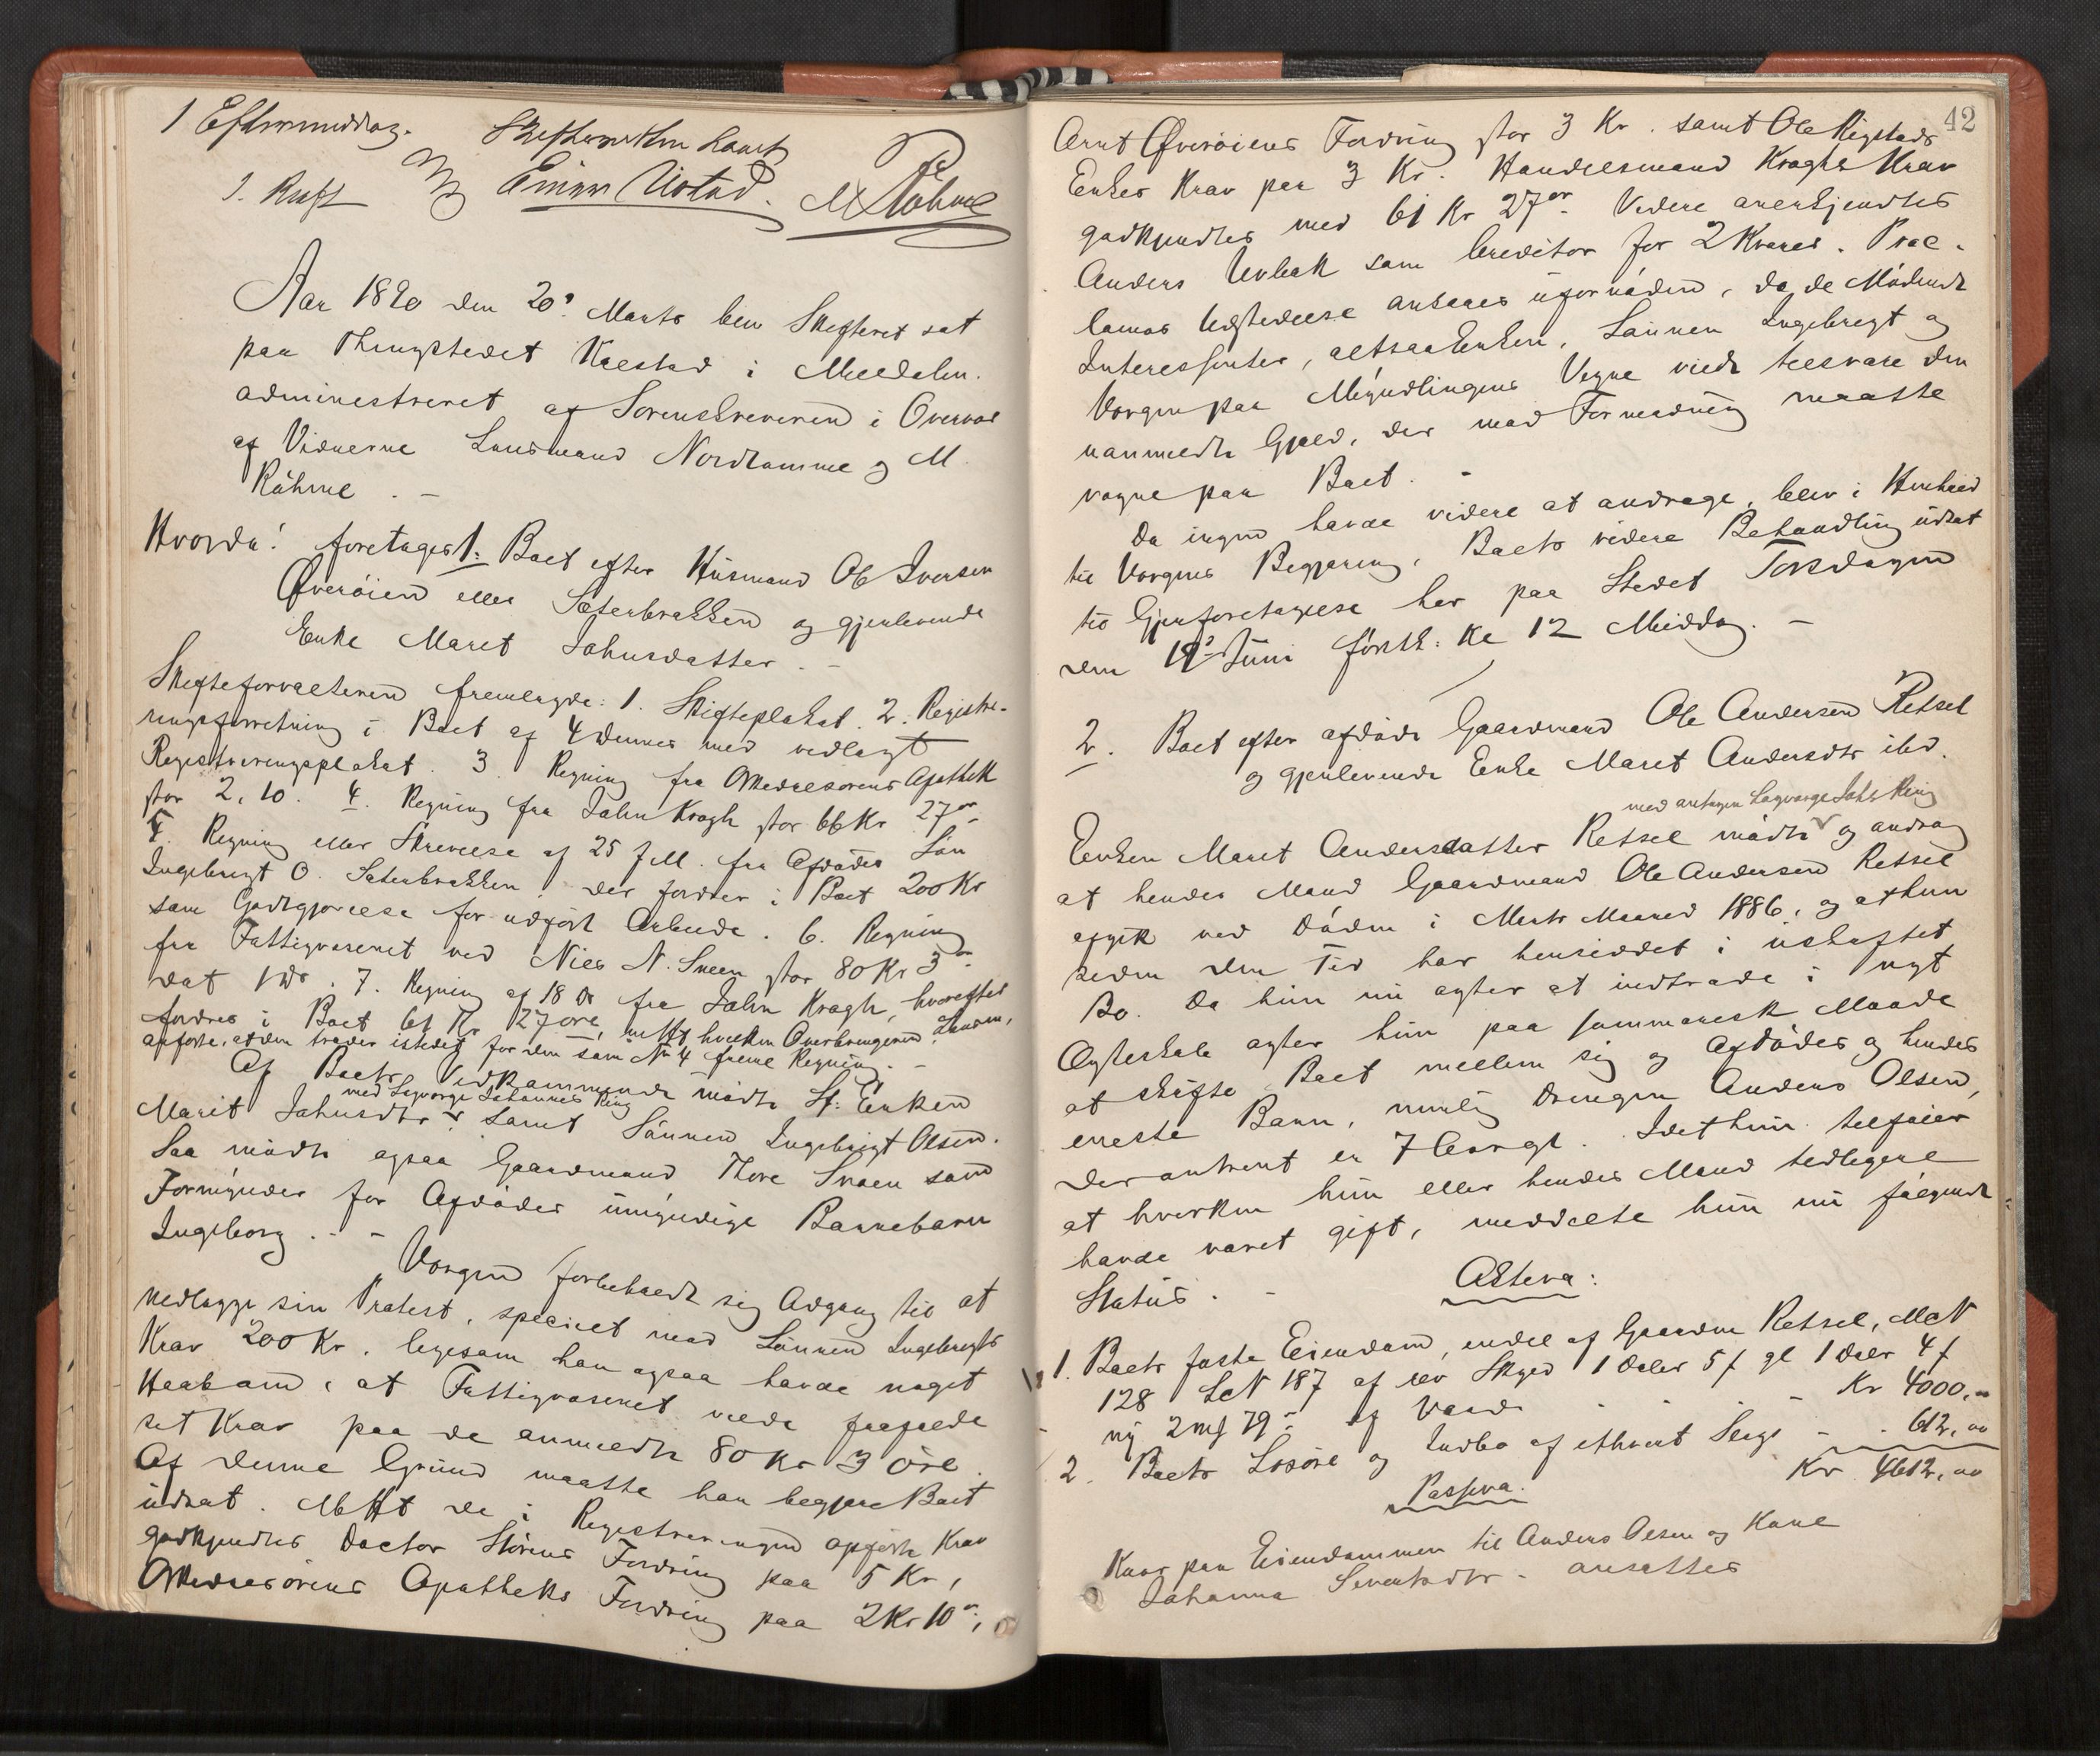 1 Eftermiddag. Skifteretten hævet
J. Krift Einar Ustad. M Röhme
Aar 1890 den 20de Marts blev Skifteret sat
paa Thingstedet Kaestad i Meldalen.
administreret af Sorenskriveren i
af Vidnerne Lensmand Nordtømme og M.
Röhme . –
Hvorda! foretages 1. Boet efter Husmand Ole Iversen
Øverøien eller Sæterbrækken og gjenlevende
Enke Maret Johnsdatter. –
Skifteforvalteren fremlagde: 1. Skifteplakat. 2. Registre-
ringsforretning i Boet af 4 dennes med vedlagt
Registreringsplakat. 3. Regning fra Meldalsørens Apothek
stor 2,10. 4. Regning fra John Kragh stor 66 Kr 27 ør
5. Regning eller Skrivelse af 25 f.M. fra Afdødes Søn
Ingebrigt O. Sæterbrækken der fordrer i Boet 200 Kr
som Godtgjørelse for udført Arbeide. 6. Regning
fra Fattigvæsenet ved Niels N. Sneen stor 80 Kr 3 ør
dat . 7. Regning af 18 ds fra John Kragh, hvorefter
fordres i Boet 61 Kr 27 øre, hvilken Overbringeren,
anførte, at den træder istedet for den som No 4 freml. Regning. –
Af Boets Vedkommende mødte St: Enken
med Lagværge Johannes Ring
Marit Johnsdtr samt Sønnen Ingebrigt Olsen.
Saa mødte ogsaa Gaardmand Thore Snoen som
Formynder for Afdødes umyndige Barnebarn
Ingeborg . – –
Værgen forbeholdt sig Adgang til at
nedlægge sin Protest, specielt mod Sønnen Ingebrigts
Krav 200 Kr. ligesom han ogsaa havde noget
Haab om, at Fattigvæsenet vilde frafalde
sit Krav paa de anmeldte 80 Kr 3 øre.
Af denne Grund maatte han begjære Boet
udsat. M H t de i Registreringen opførte Krav
godkjendtes Doctor Störens Fordring paa 5 Kr,
Meldalsørens Apotheks Fordring paa 2 Kr 10 ør,
42
Arnt Øverøiens Fordring stor 3 Kr. samt Ole Rigstads
Enkes Krav paa 3 Kr. Handelsmand Kraghs Krav
godkjendtes med 61 Kr 27 ør. Videre anerkjendtes
Anders Uvbak som Creditor for 2 Kroner. Proc-
lamas Udstedelse ansaaes ufornøden, da de Mødende
Interessenter, altsaa Enken, Sønnen Ingebrigt og
Værgen paa Myndlingens Vegne vilde tilsvare den
uanmeldte Gjæld, der mod Formodning maatte
vogne paa Boet. –
Da ingen havde videre at andrage, blev i Henhold
til Værgens Begjæring, Boets videre Behandling udsat
til Gjenforetagelse her paa Stedet Torsdagen
den 19de Juni førstk: Kl 12 Middag. –
2. Boet efter afdøde Gaardmand Ole Andersen Retsel
og gjenlevende Enke Maret Andersdtr ibd.
med antagen Lagværge Johs Ring
Enken Maret Andersdatter Retsel mødte og androg
at hendes Mand Gaardmand Ole Andersen Retsel
afgik ved Døden i Marts Maaned 1886, og at hun
siden den Tid har hensiddet i uskiftet
Bo. Da hun nu agter at indtræde i nyt
Ægteskab agter hun paa summarisk Maade
at skifte Boet mellem sig og Afdødes og hendes
eneste Barn, nemlig Drengen Anders Olsen,
der omtrent er 7 Aar gl. Idet hun tilføier
at hverken hun eller hendes Mand tidligere
havde været gift, meddelte hun nu følgende
Status. –
Aktiva:
1. Boets faste Eiendom, endel af Gaarden Retsel, MatN
128 LøN 187 af rev Skyld 1 Daler 5 f gl 1 Daler 4 f
ny 2 mf 79 ø af Værdi - - Kr 4000,00
2. Boets Løsøre og Indbo af ethvert Slags - - 612,00
Kr 4612,00
Passiva.
Kaar paa Eiendommen til Anders Olsen og Kone
Johanna Sivertsdtr - ansattes